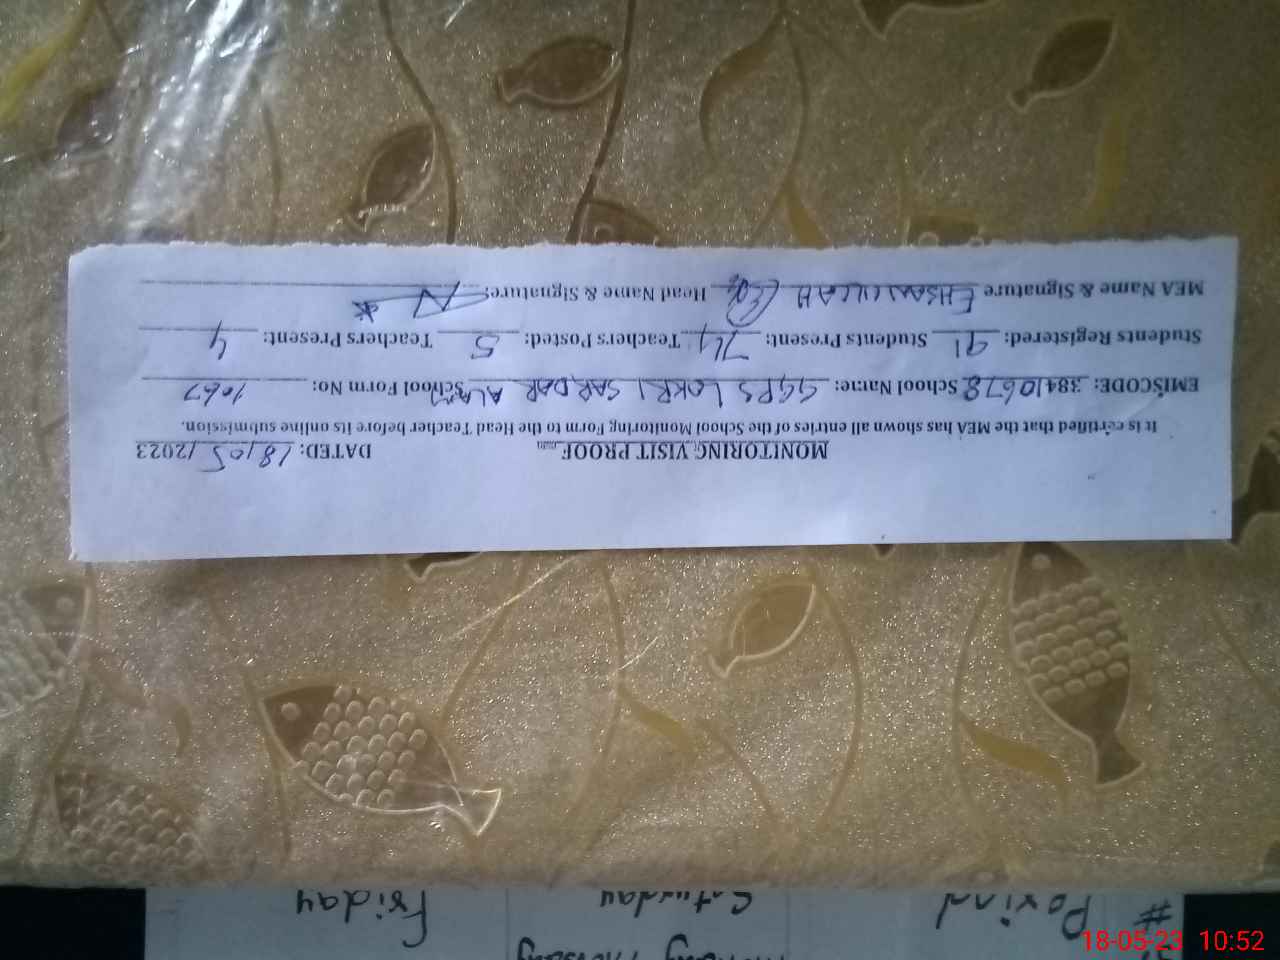 MONITORING VISIT PROOF DATED: 18/05/2023
It is certified that the MEA has shown all entries of the School Monitoring Form to the Head Teacher before its online submission.
EMISCODE: 38410678 School Name: GGPS LOKRI SARDAR ALAM School Form No: 1067
Students Registered: 91 Students Present: 74 Teachers Posted: 5 Teachers Present: 4
MEA Name & Signature EHSAN ULLAH Head Name & Signature:
# Period Saturday Friday
18-05-23 10:52